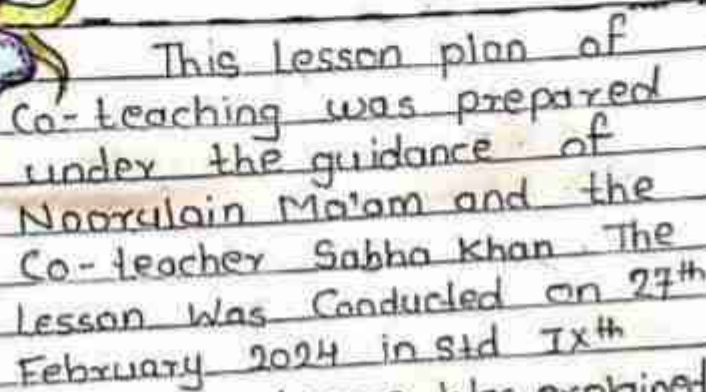 This Lesson plan of
Co-teaching was prepared
under the guidance of
Noorulain Ma'am and the
Co-teacher Sabha Khan. The
Lesson Was Conducted on 27th
February 2024 in Std IXth